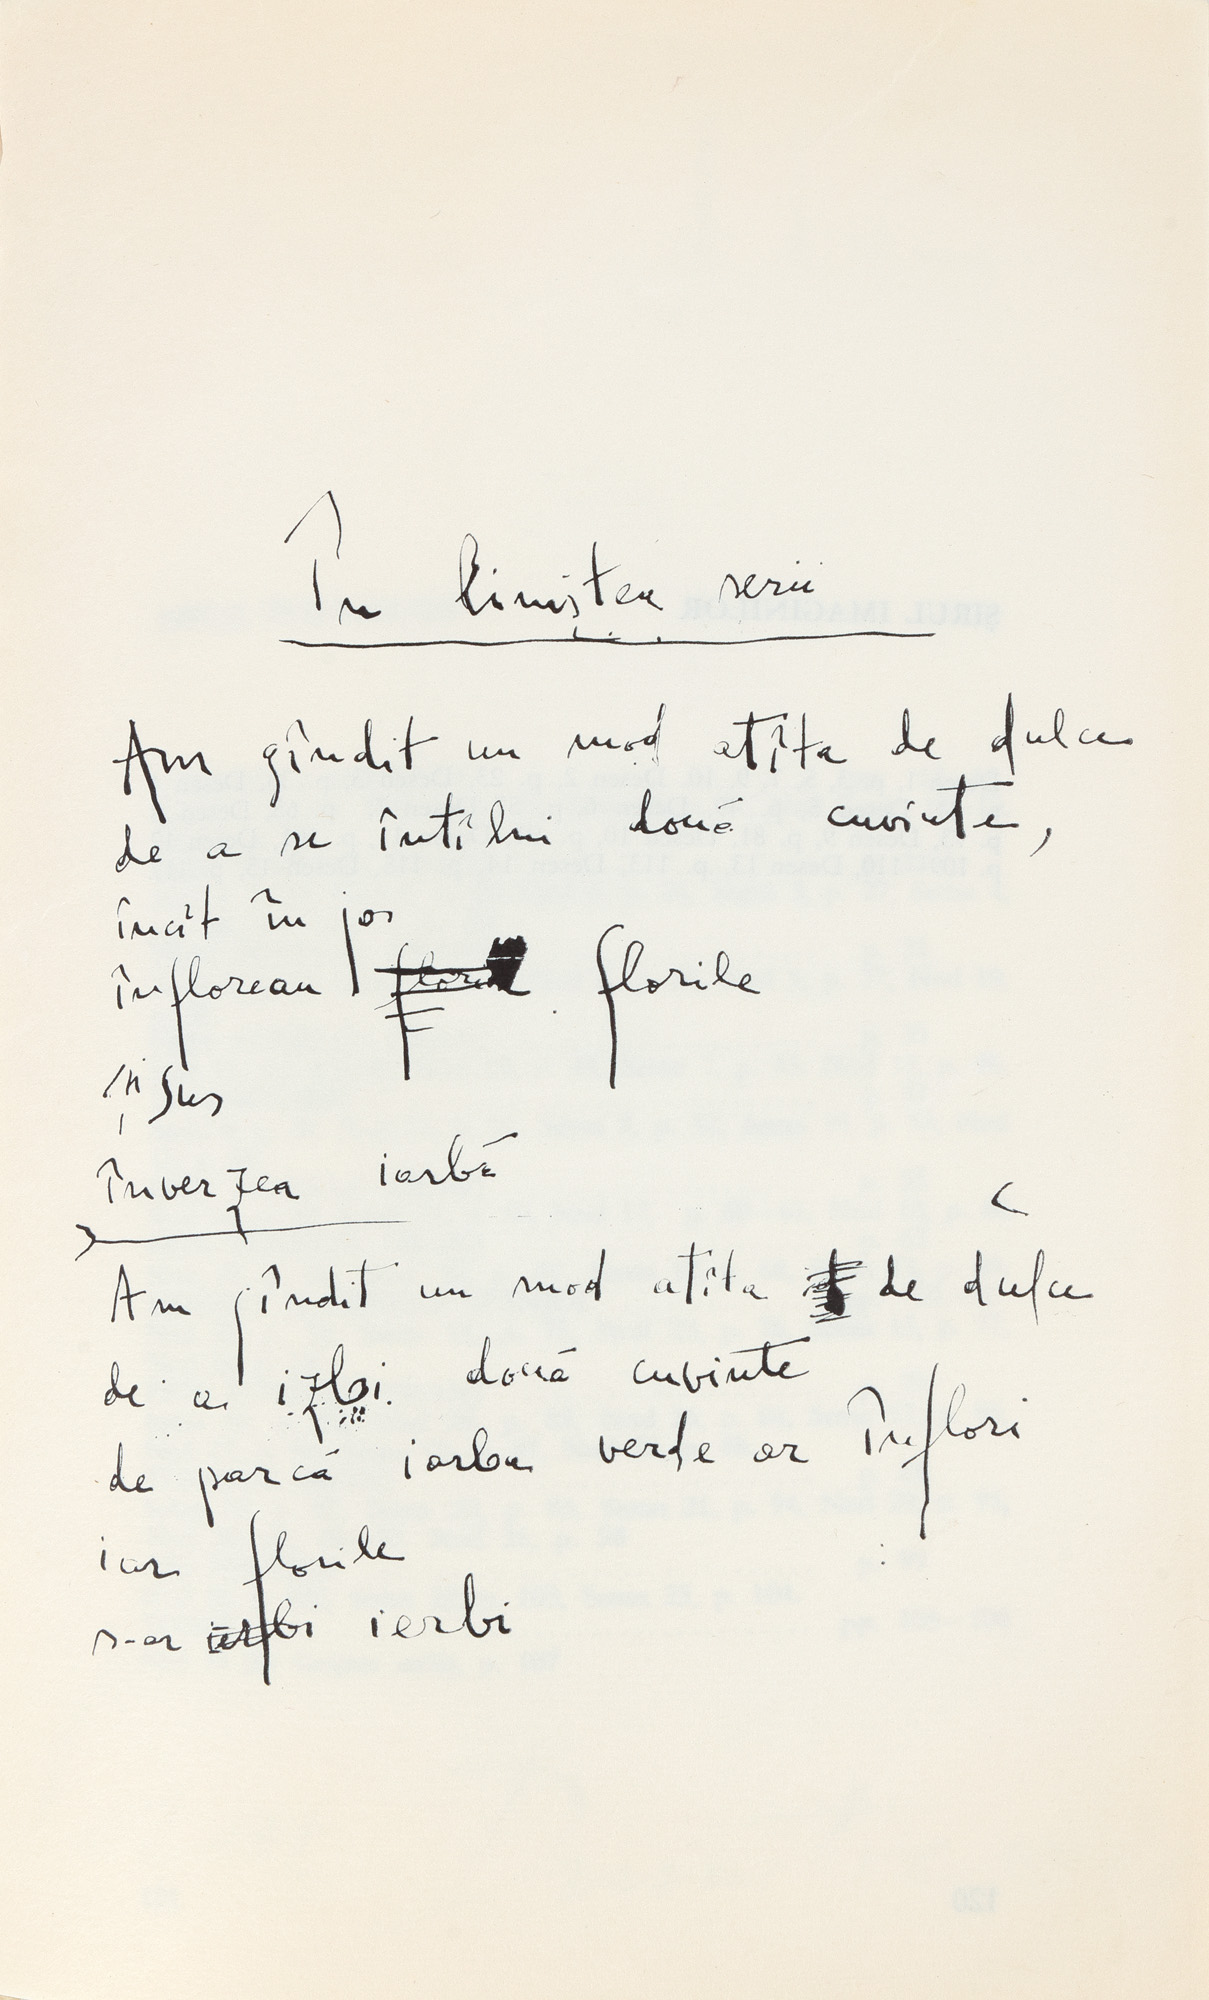 În liniștea serii
Am gîndit un mod atîta de dulce
de a se întîlni două cuvinte,
încît în jos
înfloreau florile
și sus
înverzea iarbă
Am gîndit un mod atîta de dulce
de a izbi două cuvinte
de parcă iarba verde ar înflori
iar florile
s-ar ierbi ierbi